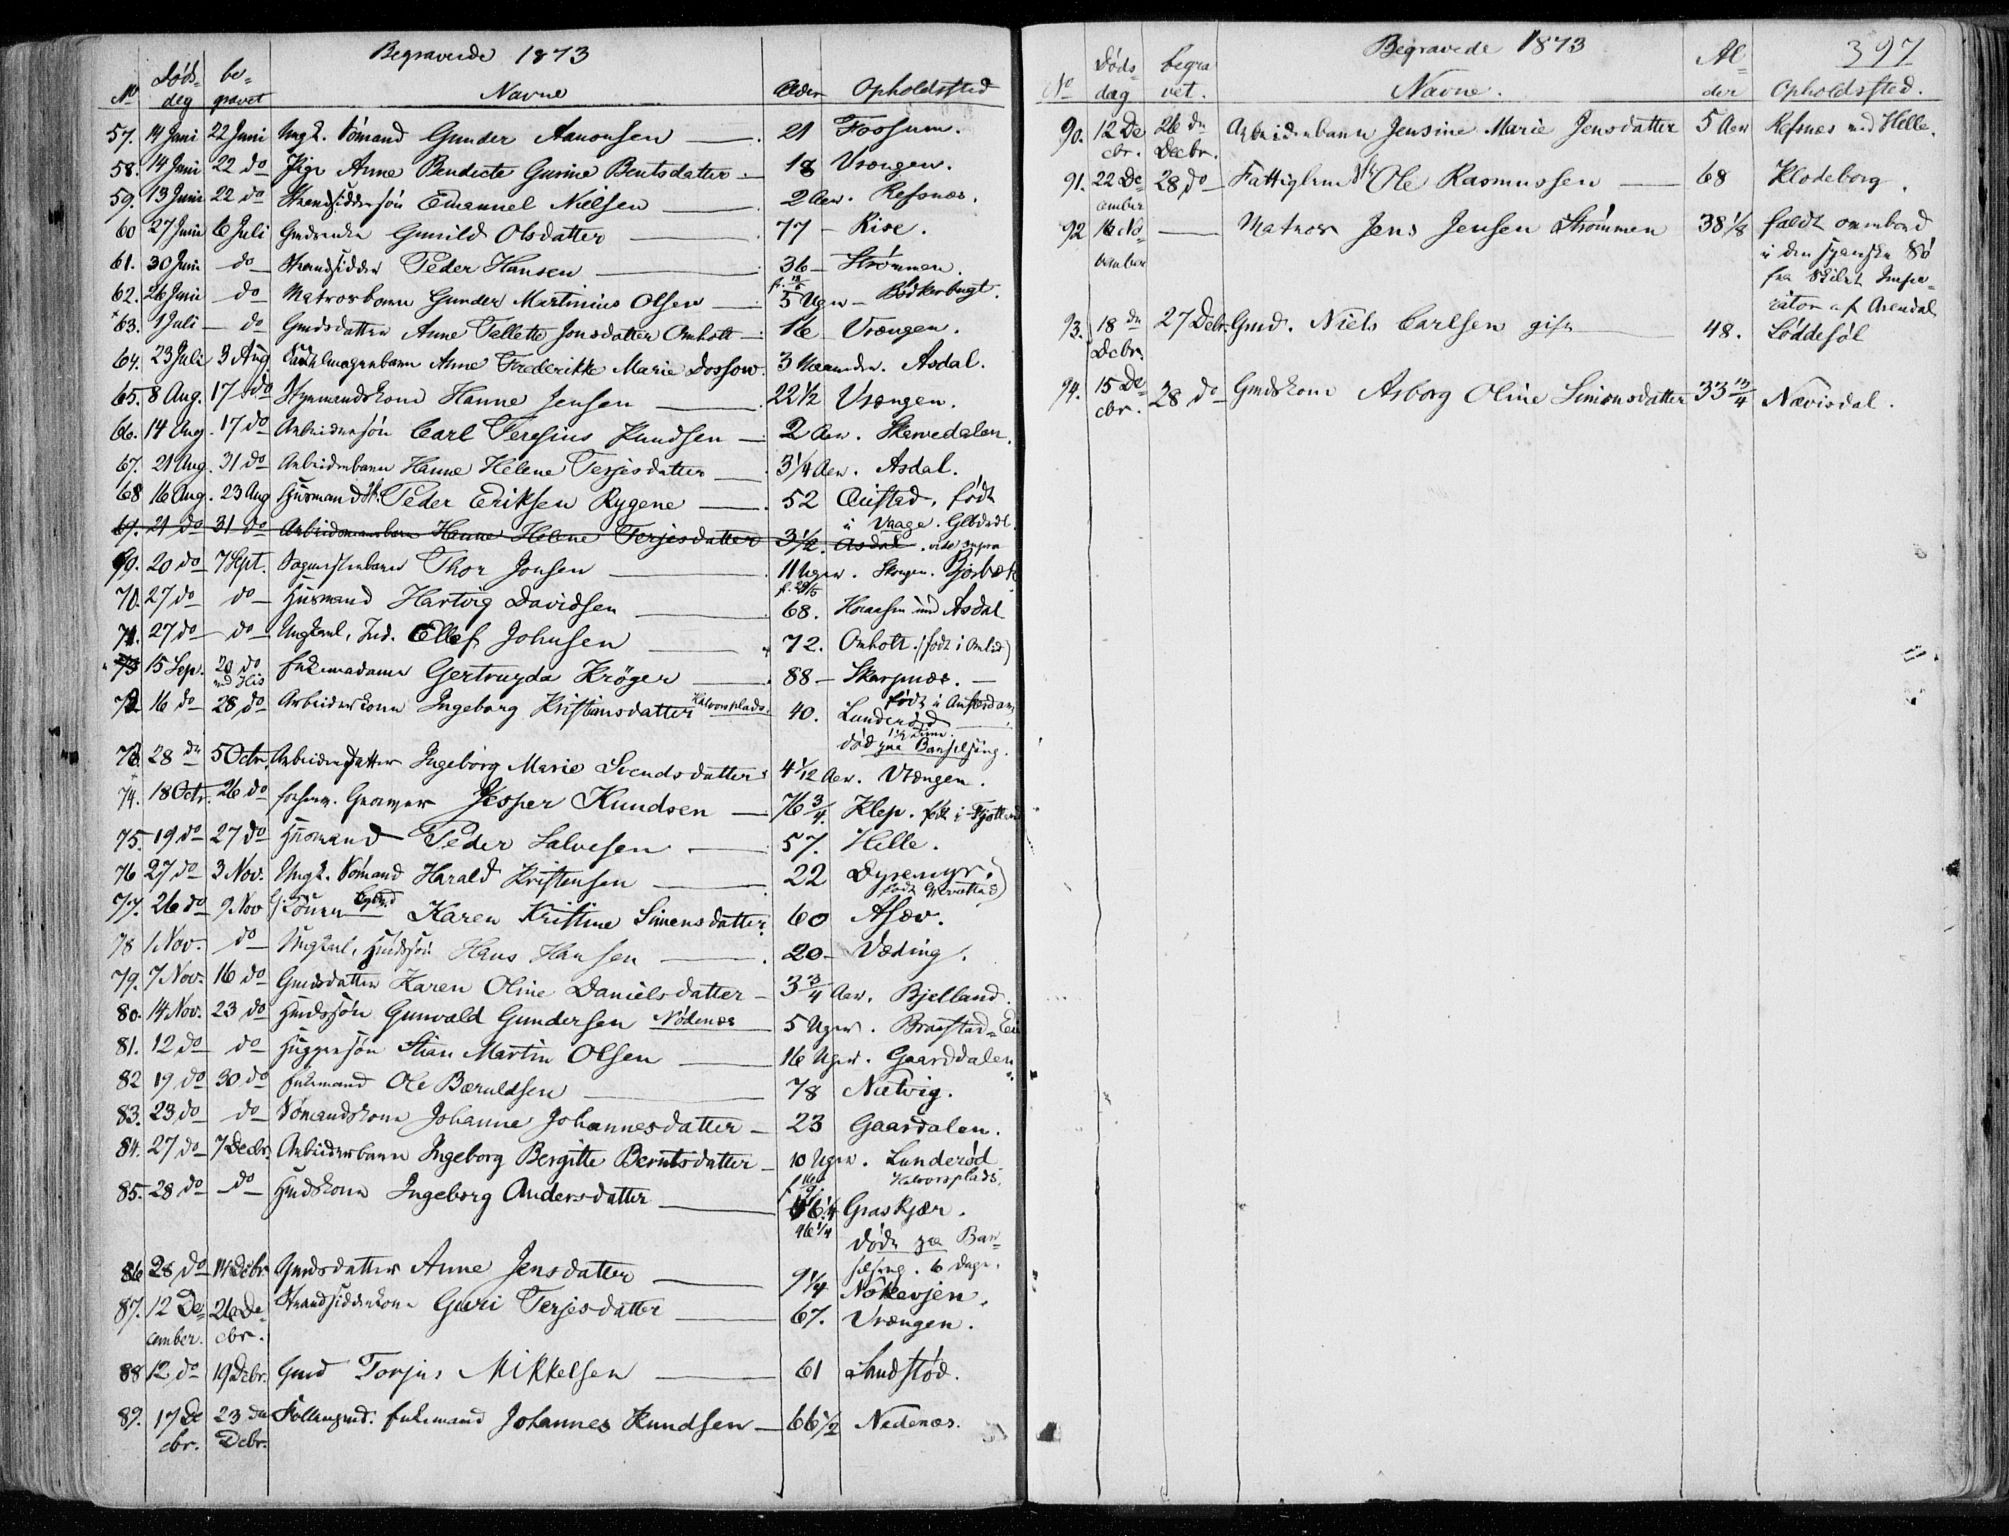 Begravede 1873
No Døds-dag be-gravet Navne Alder Opholdssted
57. 14 Juni 22 Juni Ungk. Sömand Gunder Aanonsen — 21 Fossum.
58. 14 Juni 22 do Pige Anne Bendicte Gurine Bentsdatter — 18 Vrængen.
59. 13 Juni 22 do Strandsiddersön Emanuel Nielsen — 2 Aar. Refsnæs.
60 27 Juni 6 Juli Gmdsenke Gunild Olsdatter — 77 — Rise.
61. 30 Juni do Strandsidder Peder Hansen — 36 — Strömmen.
62. 26 Juni do Matrosbarn Gunder Martinius Olsen — 5 Uger — Bödkerbugt.
63. 1 Juli — do Gmdsdatter Anne Tallette Jonsdatter Omholt — 16 Vrængen.
64. 23 Juli 3 Aug barn Anne Frederikke Marie Dossow. 3 Maaneder. Asdal.
65. 8 Aug. 17 do Styrmandskone Hanne Jensen — 22 1/2 Vrængen.
66. 14 Aug. 17 do Arbeidersön Carl Teresius Knudsen — 2 Aar. Skarvedalen.
67. 21 Aug. 31 do Arbeiderbarn Hanne Helene Terjesdatter — 3 1/4 Aar. Asdal.
68 16 Aug. 23 Aug Husmand Peder Eriksen Rygene — 52 födt
i Vaage. Glbrdl.
69. 21 do 31 do Arbeidsmandsbarn Hanne Helene Terjesdatter 3 1/2. Asdal. vide supra
69. 20 do 7 Sept. barn Thor Jonsen — 11 Uger. Bjorbæk
70. 27 do do Husmand Hartvig Davidsen — 68. ved Asdal
71. 27 do do Ungkarl, Ind. Ellef Johnsen — 72. Omholt. (födt i Omlid)
15 Sep. 20 do ved His Enkemadame Gertruyda Kröger — 88 — Skarpnæs. —
födt i Amsterdam
72 16 do 28 do Arbeiderkone Ingeborg Kristiansdatter Halvorsplads. 40. Lunderöd
död paa Barselseng.
73 28 do 5 Octr. Arbeiderdatter Ingeborg Marie Svendsdatter 4 1/12 Aar. Vrængen.
74. 18 Octr. 26 do forhenv. Jesper Knudsen — 76 3/4. Klep. födt i Fjotland
75. 19 do 27 do Husmand Peder Salvesen — 57. Helle.
76 27 do 3 Nov. Ungk. Sömand Harald Kristensen — 22 Dyremyr.
77. 26 do 9 Nov Karen Kristine Simensdatter. 60 Asæv.
78 1 Nov. do Ungkarl, Hmdssön Hans Hansen — 20 — Væding.
79. 7 Nov. 16 do Gmdsdatter Karen Oline Danielsdatter — 3 3/4 Aar. Bjelland.
80. 14 Nov. 23 do Hmdssön Gunvald Gundersen Nödenæs 5 Uger. Braastad
81. 12 do do Huggersön Stian Martin Olsen — 16 Uger. Gaarddalen
82 19 do 30 do Enkemand Ole Bæruldsen — 78 Natvig.
83. 23 do do Sömandskone Johanne Johannesdatter — 23 Gaardalen.
84. 27 do 7 Decbr. Arbeiderbarn Ingeborg Bergitte Berntsdatter — 10 Uger. Lunderöd
Halvorsplads.
85. 28 do do Hmdskone Ingeborg Andersdatter — 46 1/4 Graskjær.
46 1/4 döde paa Bar-
selseng. 6 dage.
86 28 do 14 Dcbr Gmdsdatter Anne Jensdatter — 9 1/4 Nökevjen.
87. 12 De-cember. 26 De-cbr. Strandsidderkone Guri Terjesdatter — 67. Vrængen.
88 12 do 19 Dcbr. Gmd Torjus Mikkelsen — 61 Sandstöd.
89. 17 De-cbr. 23 de Dcbr. Enkemand Johannes Knudsen — 66 1/2 Nedenæs.
Begravede 1873 397
No Døds-dag begra-vet. Navne. Al-der Opholdssted.
90. 12 De-cbr. 26 de Decbr. Arbeiderbarn Jensine Marie Jensdatter 5 Aar Refsnæs ved Helle.
91. 22 De-cember 28 do Fattiglem Ole Rasmussen — 68 Klodeborg.
92 16 No-vember — Matros Jens Jensen Strömmen 38 1/8 faldt overbord
i den spanske Sö
fra Skibet Impe-
rator af Arendal
93. 18 de Dcbr. 27 Debr. Gmd. Niels Carlsen gift — 48. Löddesöl
94. 15 De-cbr. 28 do Gmdskone Asborg Oline Simonsdatter 33 3/4 Nævisdal.